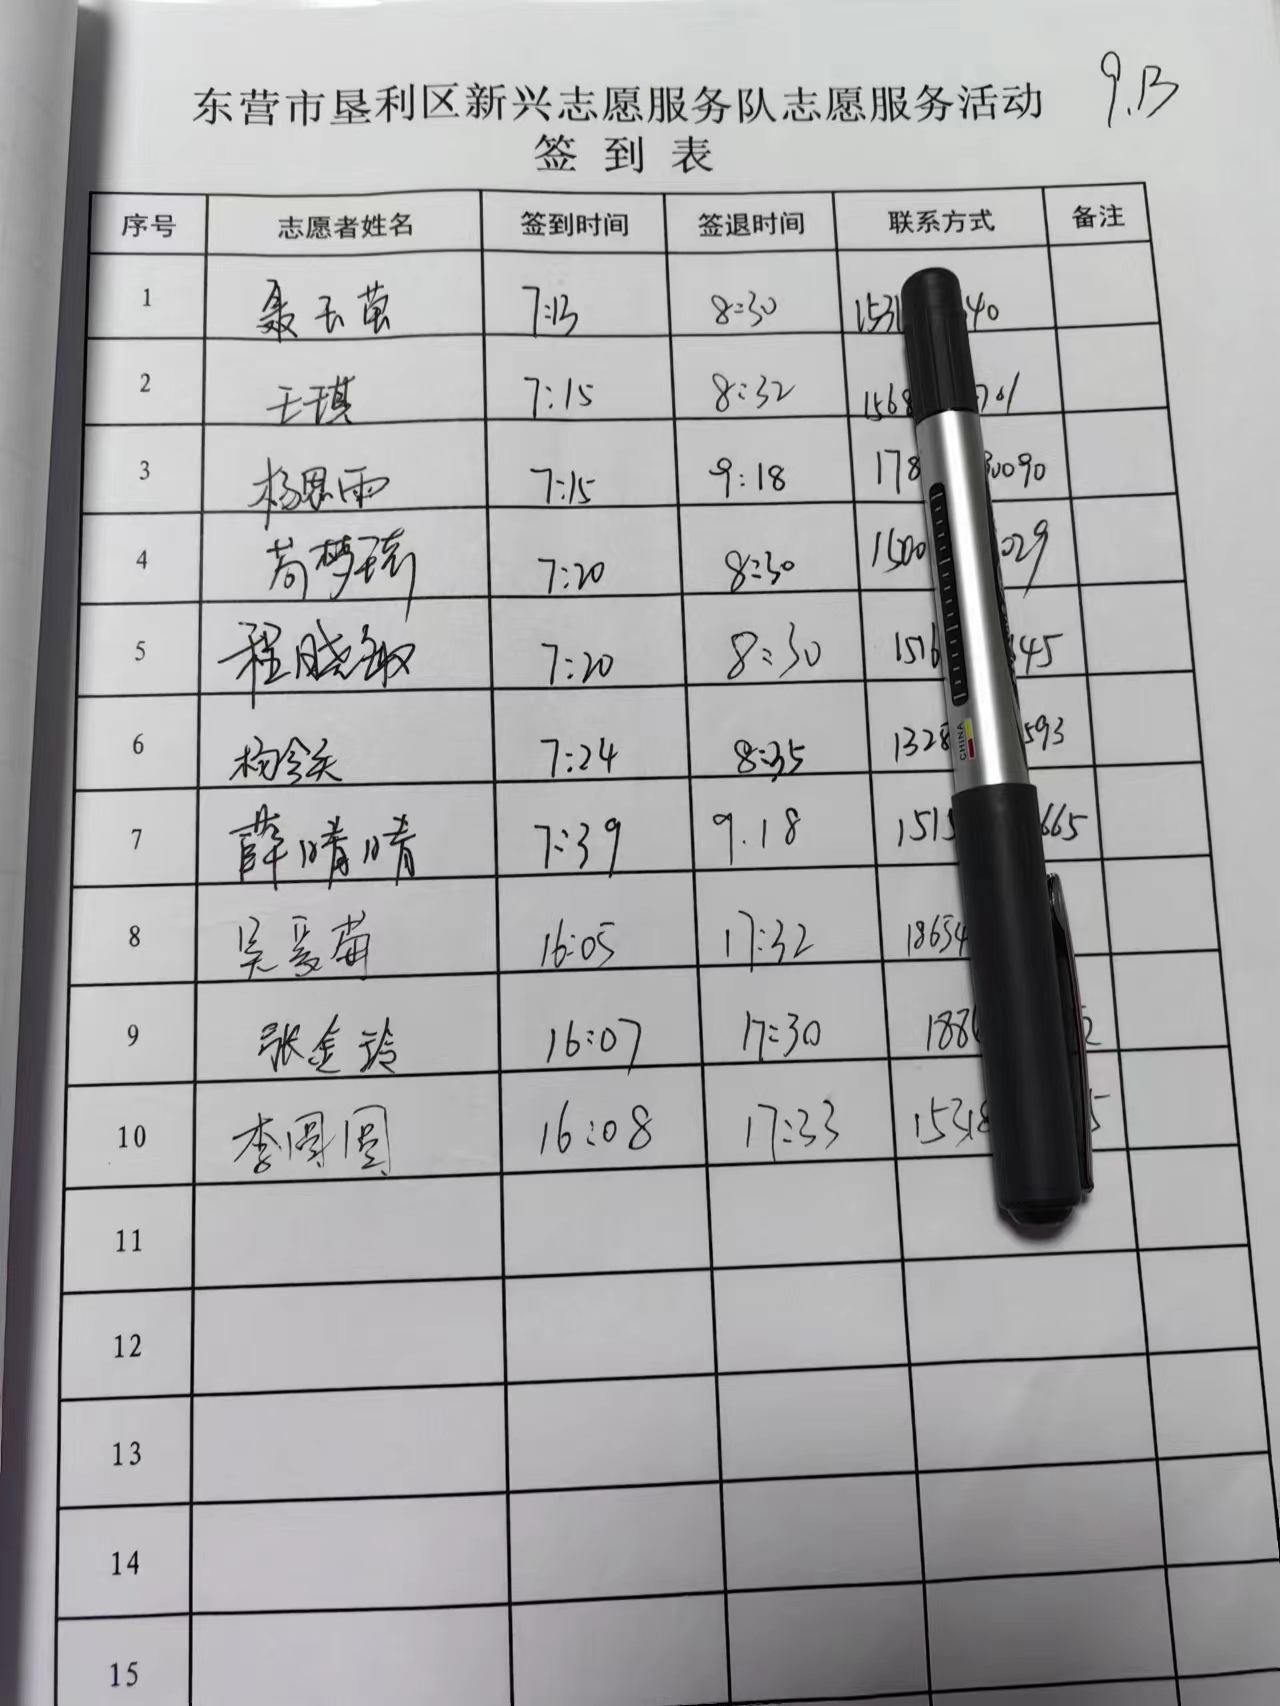 9.13
东营市垦利区新兴志愿服务队志愿服务活动
签到表
序号 志愿者姓名 签到时间 签退时间 联系方式 备注
1 聂玉萤 7:13 8:30 1531 40
2 王琪 7:15 8:32 1568 701
3 杨恩雨 7:15 9:18 178 0090
4 苟梦瑶 7:20 8:30 1500 029
5 程晓敏 7:20 8:30 1516 145
6 7:24 8:35 1328 593
7 薛晴晴 7:39 9.18 1515 665
8 吴爱菊 16:05 17:32 18654
9 张金玲 16:07 17:30 188 2
10 李圆圆 16:08 17:33 15318 5
11
12
13
14
15
CHINA